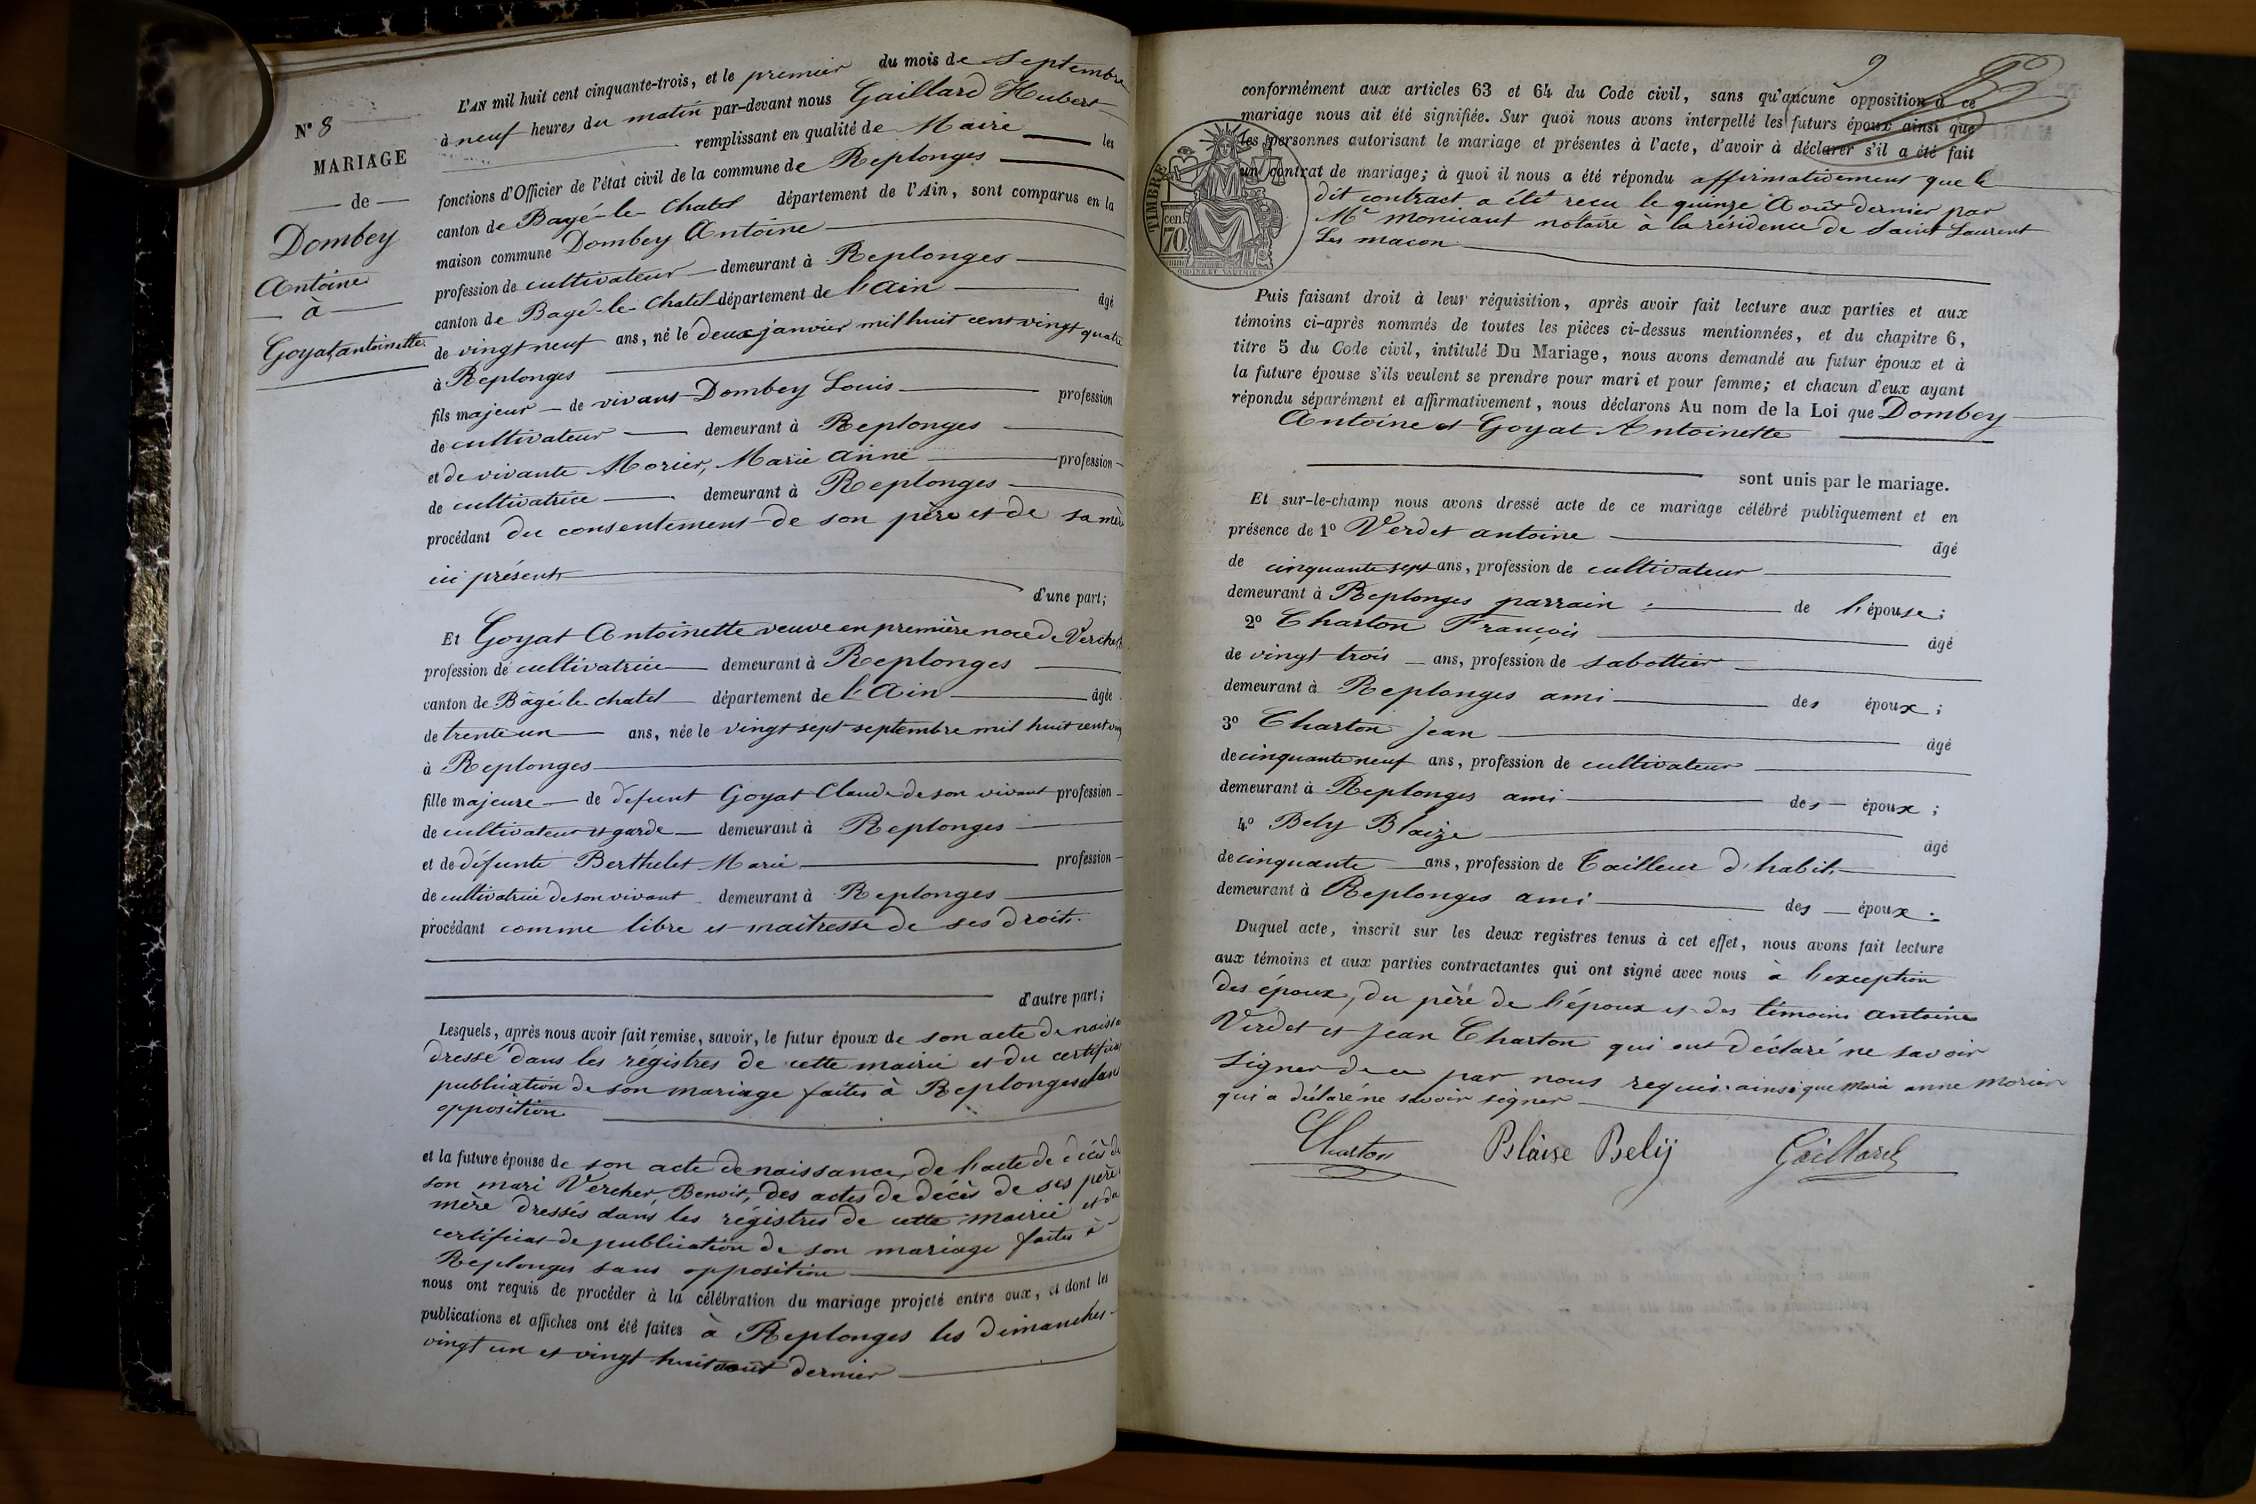 N° 8
MARIAGE
de
Dombey
Antoine
à
Goyat, antoinette
L'AN mil huit cent cinquante-trois, et le premier du mois de Septembre
à neuf heures du matin par-devant nous Gaillard Hubert
remplissant en qualité de Maire les
fonctions d'Officier de l'état civil de la commune de Replonges
canton de Bagé-le-Chatel département de l'Ain, sont comparus en la
maison commune Dombey Antoine
profession de cultivateur demeurant à Replonges
canton de Bagé-le-Chatel département de l'Ain âgé
de vingt neuf ans, né le deux janvier mil huit cent vingt quatre
à Replonges
fils majeur de vivant Dombey Louis profession
de cultivateur demeurant à Replonges
et de vivante Morier, Marie Anne profession
de cultivatrice demeurant à Replonges
procédant du consentement de son père et de sa mère
ici présents
d'une part;
Et Goyat Antoinette veuve en première noce de Vercher
profession de cultivatrice demeurant à Replonges
canton de Bâgé-le-chatel département de l'Ain âgée
de trente un ans, née le vingt sept septembre mil huit cent
à Replonges
fille majeure de défunt Goyat Claude de son vivant profession
de cultivateur et garde demeurant à Replonges
et de défunte Berthelet Marie profession
de cultivatrice de son vivant demeurant à Replonges
procédant comme libre et maîtresse de ses droits.
d'autre part;
Lesquels, après nous avoir fait remise, savoir, le futur époux de son acte de
dressé dans les régistres de cette mairie et du certificat
publication de son mariage faites à Replonges sans
opposition
et la future épouse de son acte de naissance, de l'acte de décès de
son mari Vercher, Benoit, des actes de décès de ses père
mère dressés dans les régistres de cette mairie et du
certificat de publication de son mariage faites à
Replonges sans opposition
nous ont requis de procéder à la célébration du mariage projeté entre eux, et dont les
publications et affiches ont été faites à Replonges les dimanches
vingt un et vingt huit août dernier
9
conformément aux articles 63 et 64 du Code civil, sans qu'aucune opposition à ce
mariage nous ait été signifiée. Sur quoi nous avons interpellé les futurs époux ainsi que
les personnes autorisant le mariage et présentes à l'acte, d'avoir à déclarer s'il a été fait
un contrat de mariage; à quoi il nous a été répondu affirmativement que le
dit contract a été reçu le quinze Août dernier par
Me monicaut notaire à la résidence de Saint Laurent
Les macon
TIMBRE
cen.
70
Puis faisant droit à leur réquisition, après avoir fait lecture aux parties et aux
témoins ci-après nommés de toutes les pièces ci-dessus mentionnées, et du chapitre 6,
titre 5 du Code civil, intitulé Du Mariage, nous avons demandé au futur époux et à
la future épouse s'ils veulent se prendre pour mari et pour femme; et chacun d'eux ayant
répondu séparément et affirmativement, nous déclarons Au nom de la Loi que Dombey
Antoine et Goyat Antoinette
sont unis par le mariage.
Et sur-le-champ nous avons dressé acte de ce mariage célébré publiquement et en
présence de 1° Verdet antoine âgé
de cinquante sept ans, profession de cultivateur
demeurant à Replonges parrain de l'épouse;
2° Charton François âgé
de vingt trois ans, profession de sabottier
demeurant à Replonges ami des époux;
3° Charton Jean âgé
de cinquante neuf ans, profession de cultivateur
demeurant à Replonges ami des époux;
4° Bely Blaize âgé
de cinquante ans, profession de Tailleur d'habits
demeurant à Replonges ami des époux.
Duquel acte, inscrit sur les deux registres tenus à cet effet, nous avons fait lecture
aux témoins et aux parties contractantes qui ont signé avec nous à l'exception
des époux, du père de l'époux et des témoins Antoine
Verdet et Jean Charton qui ont déclaré ne savoir
signer de ce par nous requis. ainsi que Marie anne Morier
qui a déclaré ne savoir signer
Charton Blaise Belÿ Gaillard